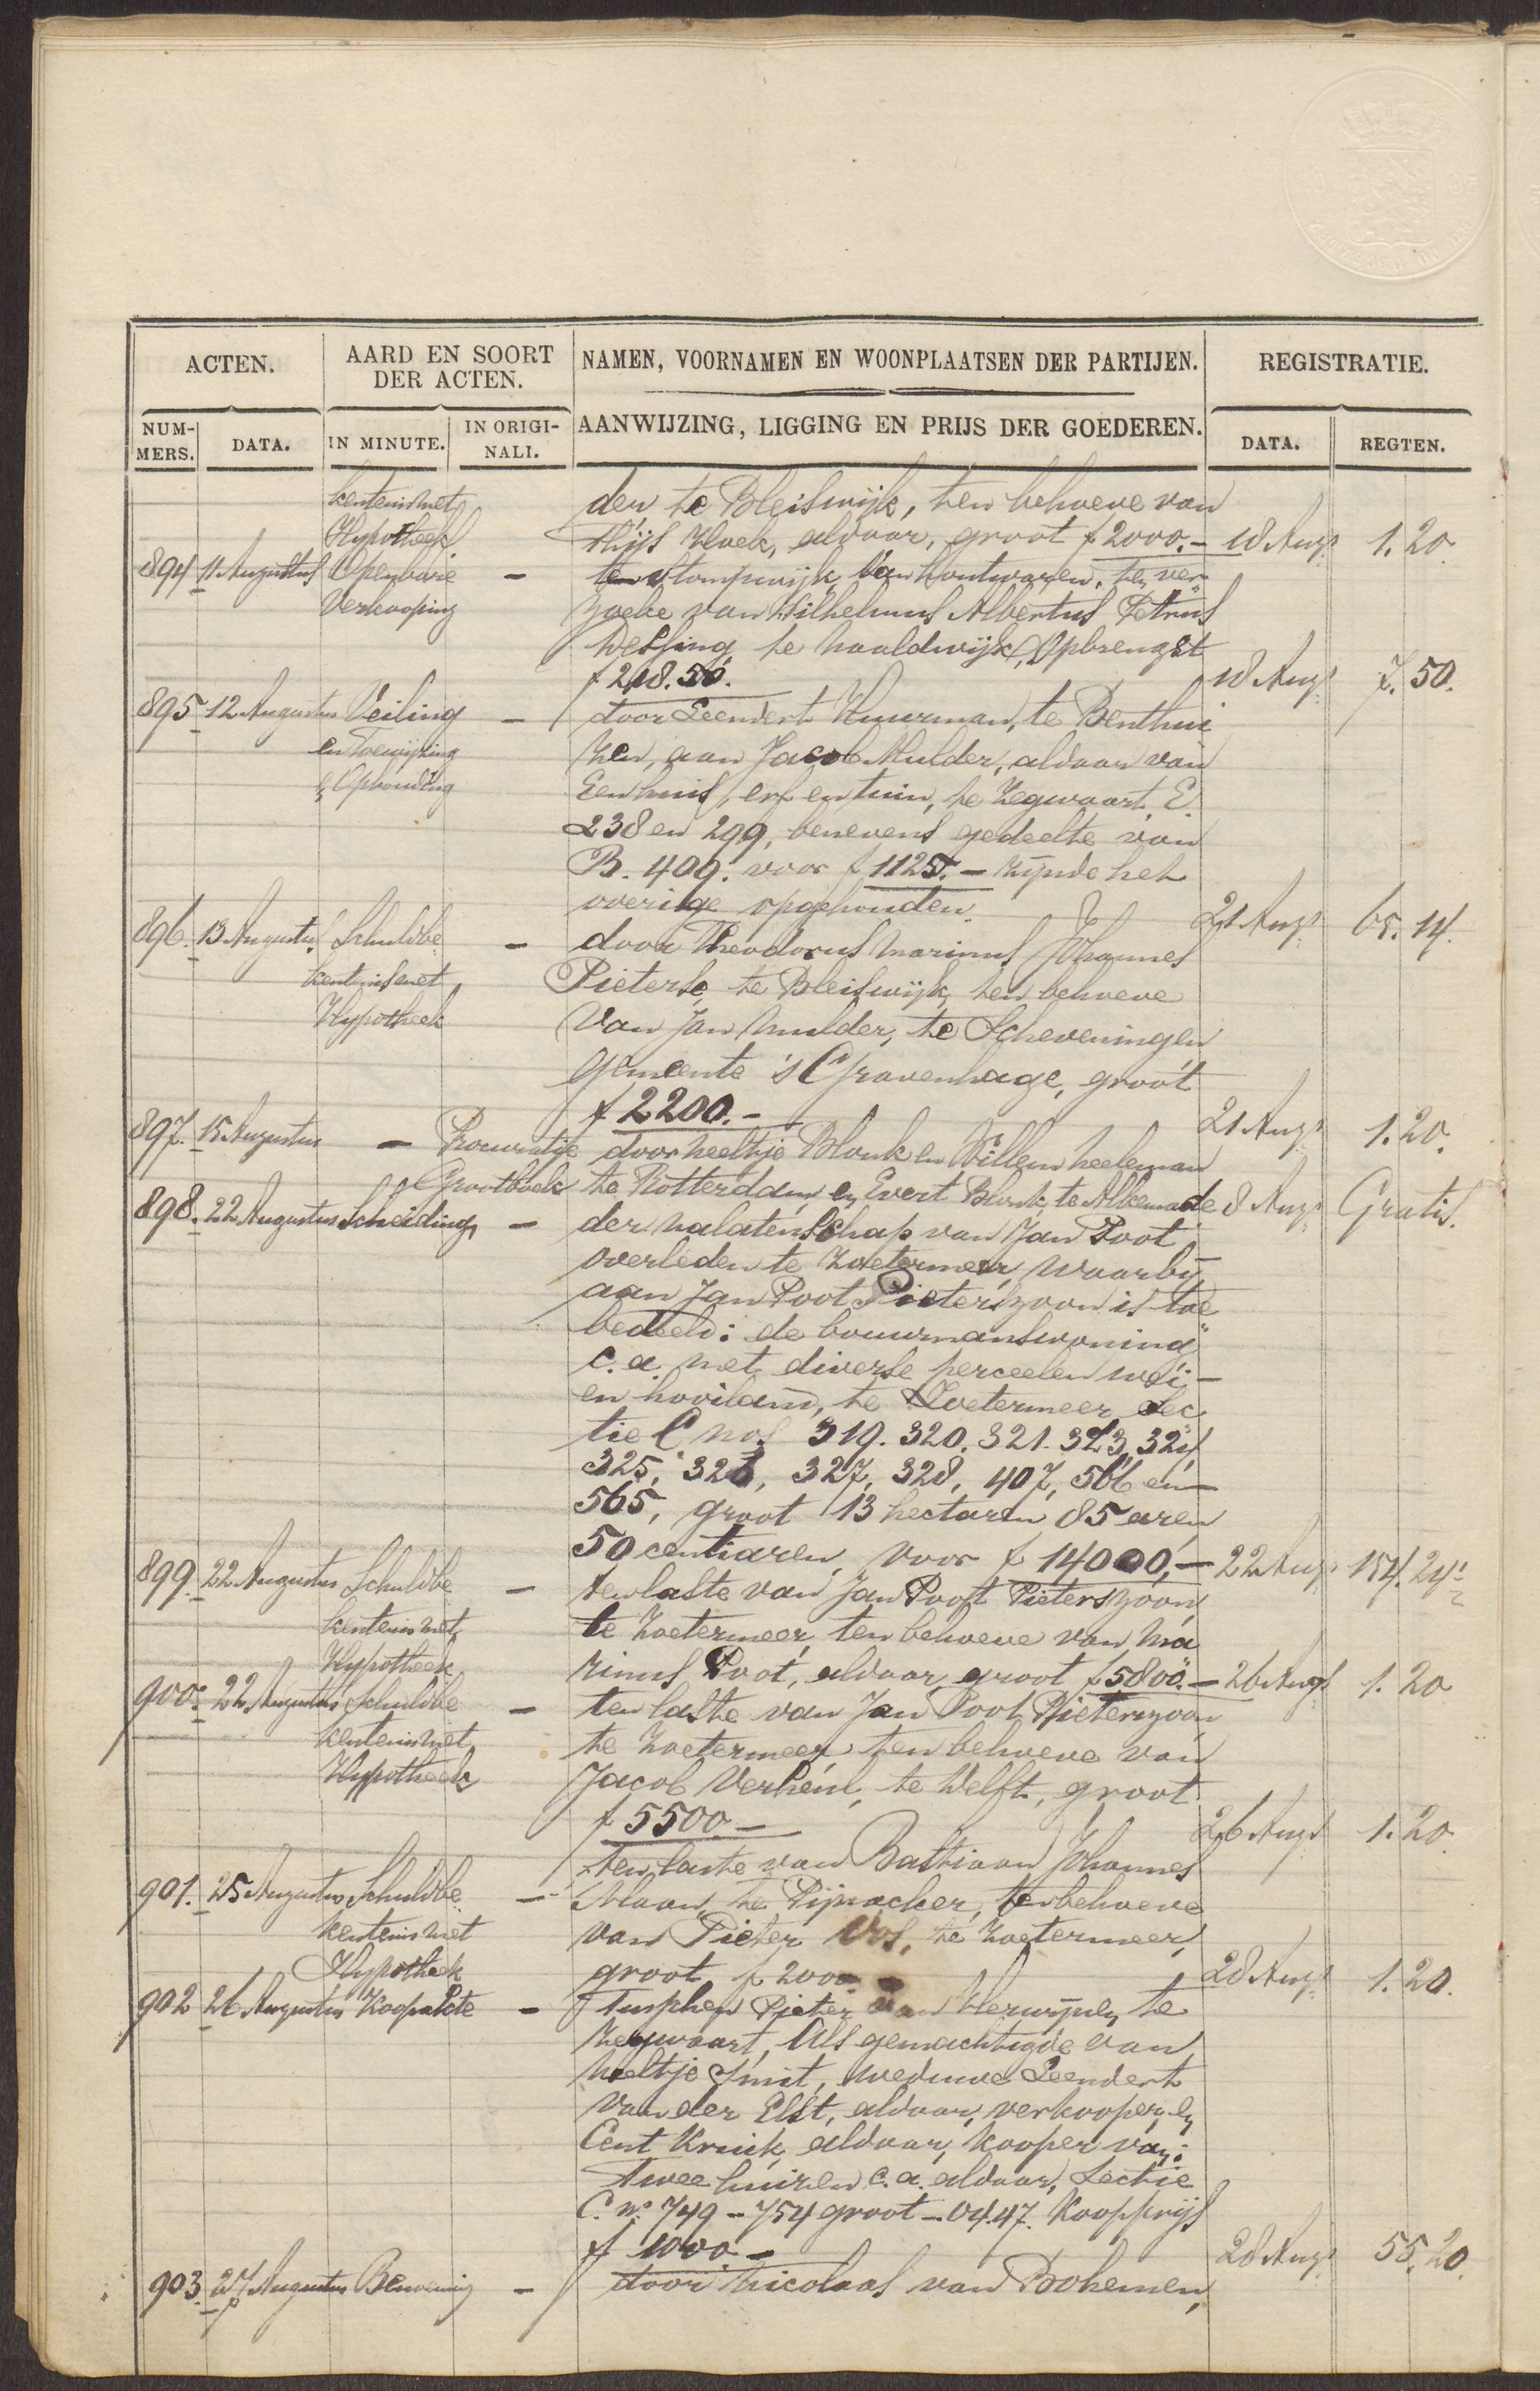 ACTEN.
AARD EN SOORT DER ACTEN.
NAMEN, VOORNAMEN EN WOONPLAATSEN DER PARTIJEN.
REGISTRATIE.
NUM-MERS.
DATA.
IN MINUTE.
IN ORIGI-NALI.
AANWIJZING, LIGGING EN PRIJS DER GOEDEREN.
DATA.
REGTEN.
kentenis met den te Bleiswijk, ten behoeve van
Hypotheek Thijs Hoek, aldaar, groot f 2000.- 18 Augs 1.20
894 11 Augustus Openbare - te Stompwijk, van houtwaren, te ver
Verkooping zoeke van Wilhelmus Albertus Petrus
Wessing te Naaldwijk, Opbrengst
f 218.50. 18 Augs 7.50.
895 12 Augustus Veiling - door Leendert Huurman, te Benthui
en Toewijzing zen, aan Jacob Mulder, aldaar van
& Ophouding Een huis, erf en tuin, te Zegwaart, E.
238 en 299, benevens gedeelte van
B. 409. voor f 1125.- zijnde het
overige opgehouden. 21 Augs 65.14.
896. 13 Augustus Schuldbe - door Theodorus Marinus Johannes
kentenis met Pieterse, te Bleiswijk, ten behoeve
Hypotheek van Jan Mulder, te Scheveningen
gemeente 's Gravenhage, groot
f 2200.- 21 Augs 1.20.
897. 15 Augustus - Procuratie door Neeltje Blonk en Willem Neeleman
Grootboek te Rotterdam en Evert Blonk, te Alkemade 8 Augs Gratis.
898. 22 Augustus Scheiding - der nalatenschap van Jan Poot
overleden te Zoetermeer, waarbij
aan Jan Poot Pieterszoon is toe
bedeeld: de bouwmanswoning
c.a. met diverse perceelen wei-
en hooiland, te Zoetermeer Sec
tie C nos 319. 320. 321. 323, 324,
325, 326, 327, 328, 407, 566 en
565, groot 13 hectaren 85 aren
50 centiaren, voor f 14000,- 22 Augs 154.24
899. 22 Augustus Schuldbe - ten laste van Jan Poot Pieterszoon
kentenis met te Zoetermeer, ten behoeve van Ma
Hypotheek rinus Poot, aldaar, groot f 5800.- 26 Augs 1.20
900. 22 Augustus Schuldbe - ten laste van Jan Poot Pieterszoon
kentenis met te Zoetermeer, ten behoeve van
Hypotheek Jacob Verheul, te Delft, groot
f 5500.- 26 Augs 1.20.
ten laste van Bastiaan Johannes
901. 25 Augustus Schuldbe - Maan, te Pijnacker, ten behoeve
kentenis met van Pieter Vos, te Zoetermeer,
Hypotheek groot f 2000 - 28 Augs 1.20.
902 26 Augustus Koopakte - Tusschen Pieter van Herwijnen, te
Zegwaart, als gemachtigde van
Neeltje Smit, weduwe Leendert
van der Elst, aldaar, verkooper, en
Cent Kruik, aldaar, kooper van:
Twee huizen c.a. aldaar, Sectie
C. no 749 - 754 groot - 04.47. Koopprijs
f 1000.- 28 Augs 55.20.
903. 27 Augustus Bewening - door Nicolaas van Bohemen,